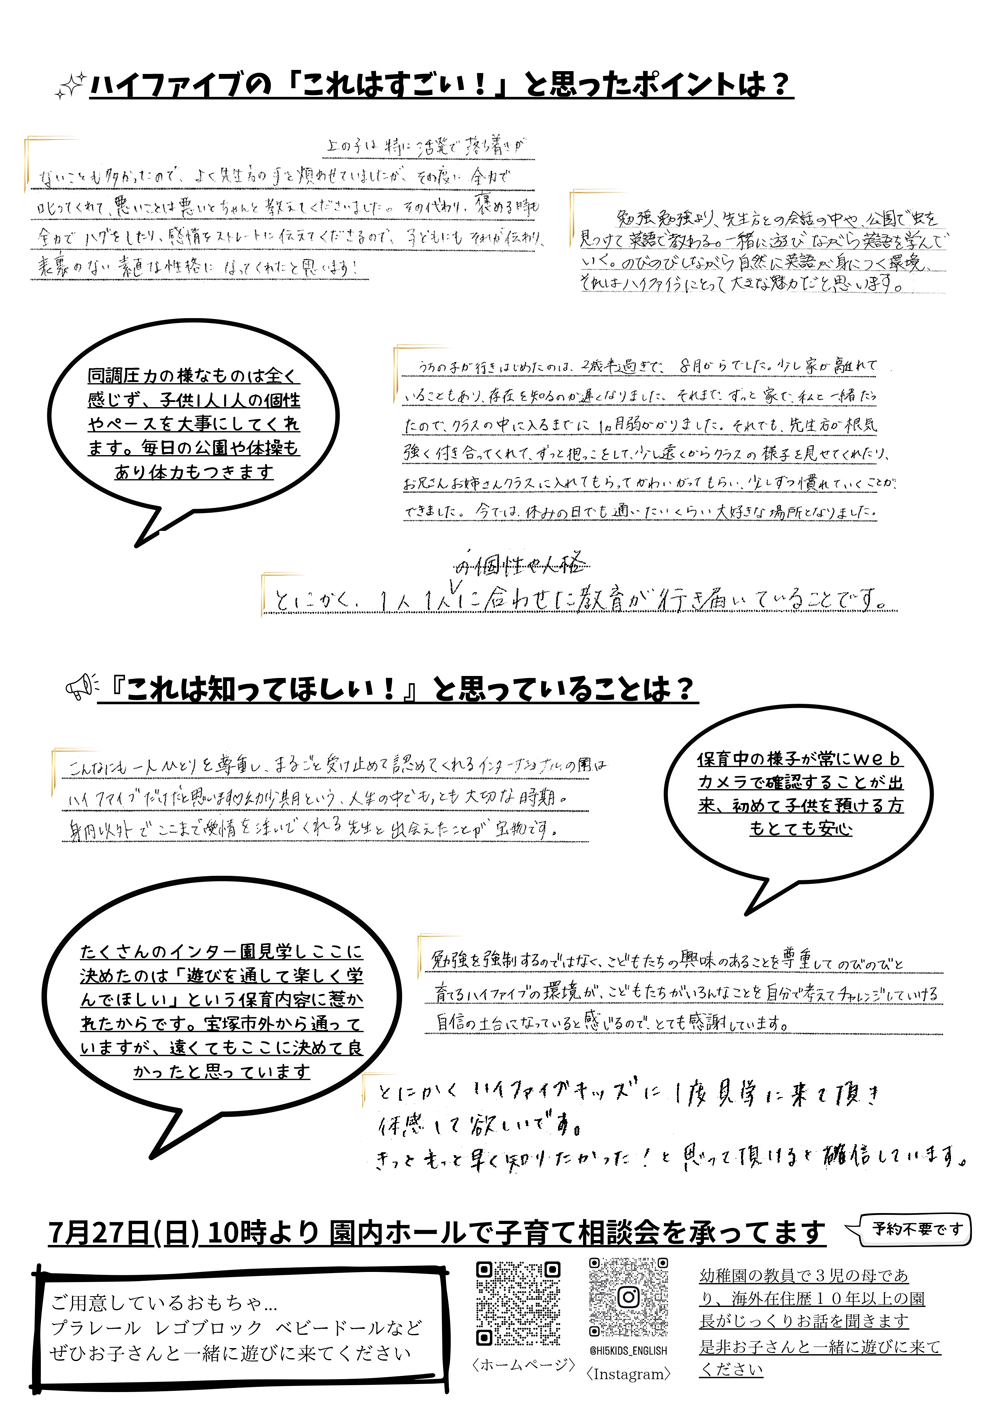 ハイファイブの「これはすごい！」と思ったポイントは？
上の子は特に活発で落ち着きが
ないことも多かったので、よく先生方の手を煩わせていましたが、その度に全力で
叱ってくれて、悪いことは悪いとちゃんと教えてくださいました。その代わり、褒める時も
全力でハグをしたり、感情をストレートに伝えてくださるので、子どもにもそれが伝わり、
表裏のない素直な性格になってくれたと思います！
勉強勉強より、先生方との会話の中や、公園で虫を
見つけて英語で教わる。一緒に遊びながら英語を学んで
いく。のびのびしながら自然に英語が身につく環境、
それはハイファイブにとって大きな魅力だと思います。
同調圧力の様なものは全く
感じず、子供1人1人の個性
やペースを大事にしてくれ
ます。毎日の公園や体操も
あり体力もつきます
うちの子が行きはじめたのは、2歳半過ぎで、8月からでした。少し家が離れて
いることもあり、存在を知るのが遅くなりました。それまで、ずっと家で、私と一緒だっ
たので、クラスの中に入るまでに1ヵ月弱かかりました。それでも、先生方が根気
強く付き合ってくれて、ずっと抱っこをして、少し遠くからクラスの様子を見せてくれたり、
お兄さんお姉さんクラスに入れてもらってかわいがってもらい、少しずつ慣れていくことが
できました。今では、休みの日でも通いたいくらい大好きな場所となりました。
の個性や人格
とにかく、1人1人に合わせた教育が行き届いていることです。
『これは知ってほしい！』と思っていることは？
こんなにも一人ひとりを尊重し、まるごと受け止めて認めてくれるインターナショナルの園は
ハイファイブだけだと思います♡幼少期という、人生の中でもっとも大切な時期。
身内以外でここまで愛情を注いでくれる先生と出会えたことが宝物です。
保育中の様子が常にｗｅｂ
カメラで確認することが出
来、初めて子供を預ける方
もとても安心
たくさんのインター園見学しここに
決めたのは「遊びを通して楽しく学
んでほしい」という保育内容に惹か
れたからです。宝塚市外から通って
いますが、遠くてもここに決めて良
かったと思っています
勉強を強制するのではなく、こどもたちの興味のあることを尊重してのびのびと
育てるハイファイブの環境が、こどもたちがいろんなことを自分で考えてチャレンジしていける
自信の土台になっていると感じるので、とても感謝しています。
とにかくハイファイブキッズに1度見学に来て頂き
体感して欲しいです。
きっともっと早く知りたかった！と思って頂けると確信しています。
7月27日(日) 10時より 園内ホールで子育て相談会を承ってます
予約不要です
ご用意しているおもちゃ...
プラレール レゴブロック ベビードールなど
ぜひお子さんと一緒に遊びに来てください
〈ホームページ〉
@HI5KIDS_ENGLISH
〈Instagram〉
幼稚園の教員で３児の母であ
り、海外在住歴１０年以上の園
長がじっくりお話を聞きます
是非お子さんと一緒に遊びに来て
ください